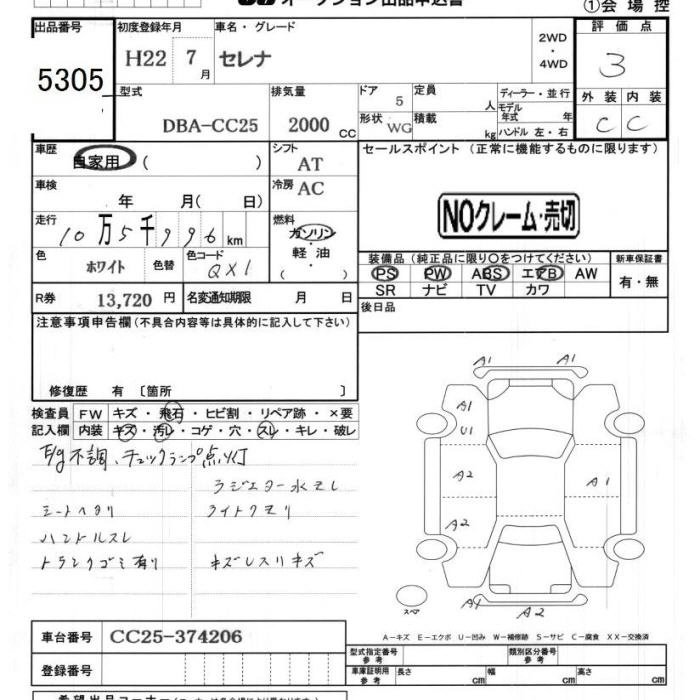 オークション出品申込書 ①会場控
出品番号 初度登録年月 車名・グレード 評価点
5305 H22 7月 セレナ 2WD・4WD 3
型式 排気量 ドア 定員 ディーラー・並行 外装 内装
DBA-CC25 2000 CC 5 人 モデル年式 年 C C
形状 WG 積載 kg ハンドル 左・右
車歴 シフト セールスポイント (正常に機能するものに限ります)
自家用 ( ) AT
車検 冷房 AC
年 月( 日) NOクレーム・売切
走行 燃料
10万5千996km ガソリン・軽油・( )
色 色替 色コード 装備品(純正品に限り○をつけてください) 新車保証書
ホワイト QX1 PS PW ABS エアB AW 有・無
SR ナビ TV カワ
R券 13,720円 名変通知期限 月 日 後日品
注意事項申告欄(不具合内容等は具体的に記入して下さい)
修復歴 有 〔箇所 〕
検査員 FW キズ・飛石・ヒビ割・リペア跡・×要
記入欄 内装 キズ・汚レ・コゲ・穴・スレ・キレ・破レ
E/g不調、チェックランプ点灯
ラジエター水モレ
シートヘタリ ライトクモリ
ハンドルスレ
トランクゴミ有り キズレスリキズ
A1 A1
A1
U1
A2 A1
A2
スペア A4 A2
A-キズ E-エクボ U-凹み W-補修跡 S-サビ C-腐食 XX-交換済
車台番号 CC25-374206
型式指定番号 参考 類別区分番号 参考
登録番号 車庫証明用 参考 長さ cm 幅 cm 高さ cm